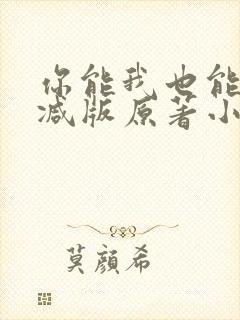 你能我也能
减版原著小
莫颜希